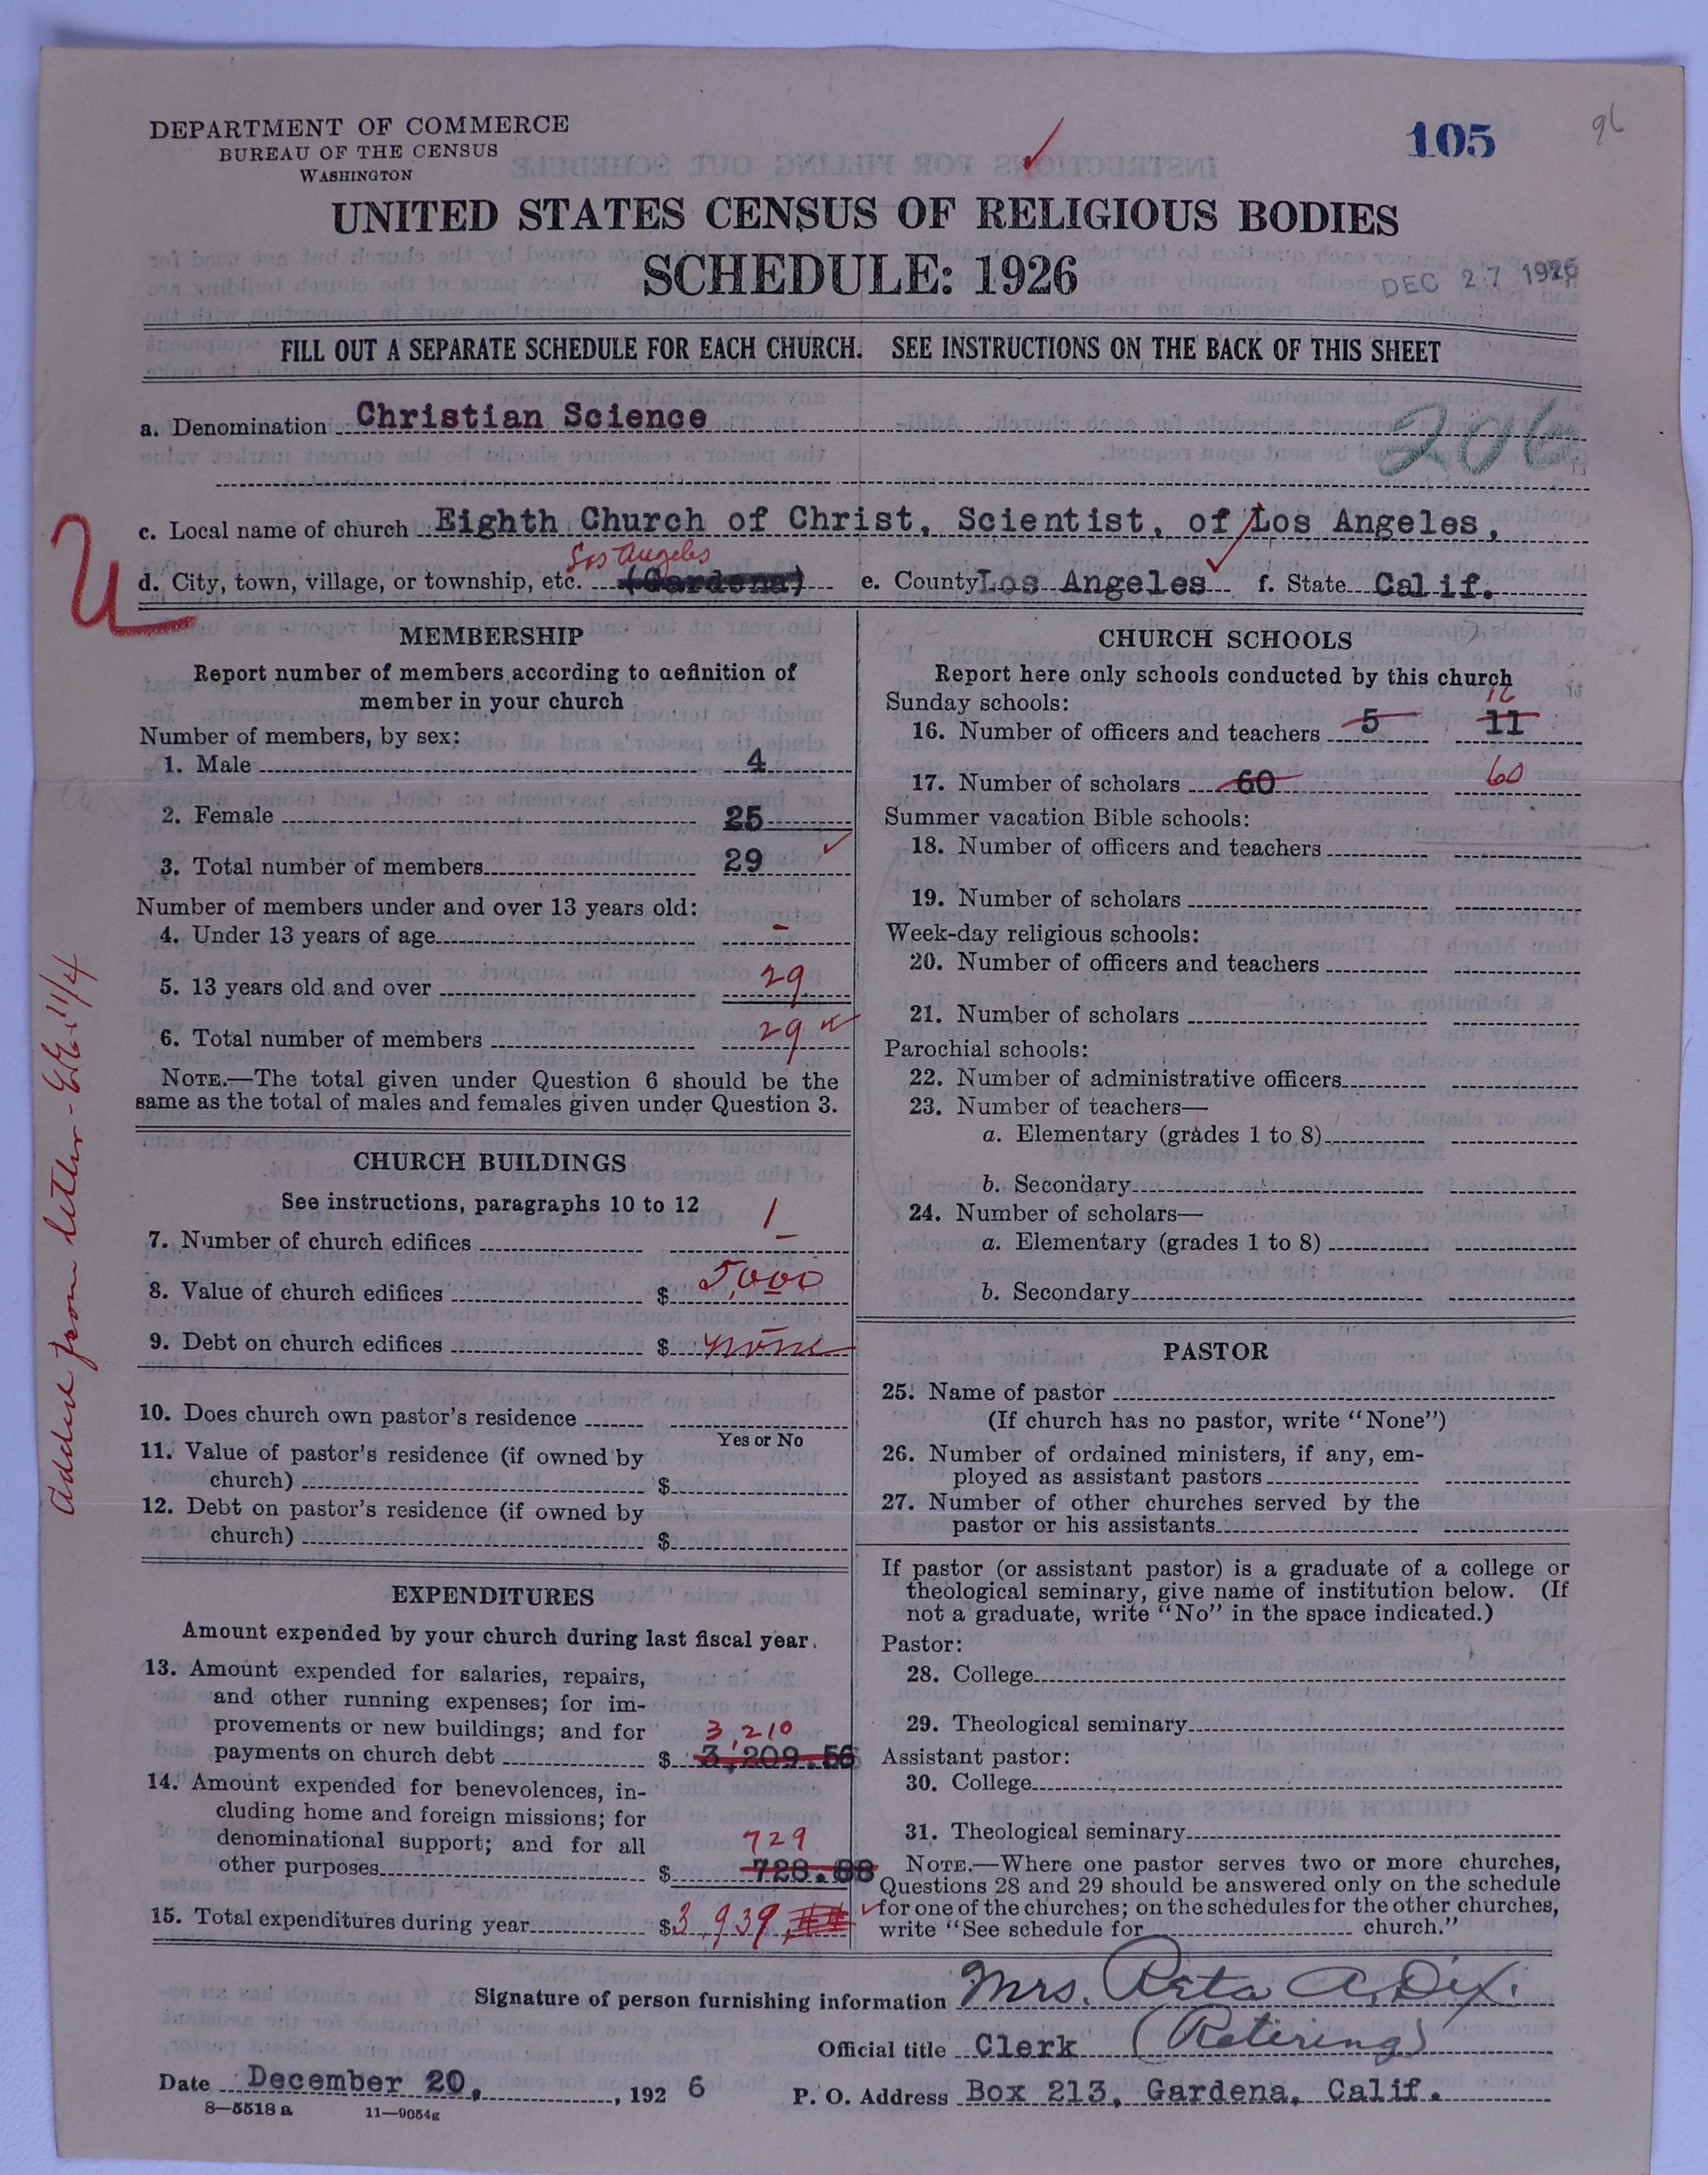 DEPARTMENT OF COMMERCE
BUREAU OF THE CENSUS
WASHINGTON
105
96
UNITED STATES CENSUS OF RELIGIOUS BODIES
SCHEDULE: 1926
DEC 27 1926
FILL OUT A SEPARATE SCHEDULE FOR EACH CHURCH. SEE INSTRUCTIONS ON THE BACK OF THIS SHEET
a. Denomination Christian Science
c. Local name of church Eighth Church of Christ, Scientist, of Los Angeles,
Los Angeles
d. City, town, village, or township, etc. (Gardena) e. County Los Angeles f. State Calif.
U
MEMBERSHIP
Report number of members according to definition of
member in your church
Number of members, by sex:
1. Male 4
2. Female 25
3. Total number of members 29
Number of members under and over 13 years old:
4. Under 13 years of age -
5. 13 years old and over 29
6. Total number of members 29
NOTE.—The total given under Question 6 should be the
same as the total of males and females given under Question 3.
CHURCH BUILDINGS
See instructions, paragraphs 10 to 12
7. Number of church edifices 1
8. Value of church edifices $ 5,000
9. Debt on church edifices $ none
10. Does church own pastor's residence
Yes or No
11. Value of pastor's residence (if owned by
church) $
12. Debt on pastor's residence (if owned by
church) $
EXPENDITURES
Amount expended by your church during last fiscal year.
13. Amount expended for salaries, repairs,
and other running expenses; for im-
provements or new buildings; and for 3,210
payments on church debt $ 3,209.56
14. Amount expended for benevolences, in-
cluding home and foreign missions; for
denominational support; and for all 729
other purposes $ 728.88
15. Total expenditures during year $3,939
Added from letter - 11/4
CHURCH SCHOOLS
Report here only schools conducted by this church
Sunday schools:
16. Number of officers and teachers 5 11
17. Number of scholars 60 60
Summer vacation Bible schools:
18. Number of officers and teachers
19. Number of scholars
Week-day religious schools:
20. Number of officers and teachers
21. Number of scholars
Parochial schools:
22. Number of administrative officers
23. Number of teachers—
a. Elementary (grades 1 to 8)
b. Secondary
24. Number of scholars—
a. Elementary (grades 1 to 8)
b. Secondary
PASTOR
25. Name of pastor
(If church has no pastor, write "None")
26. Number of ordained ministers, if any, em-
ployed as assistant pastors
27. Number of other churches served by the
pastor or his assistants
If pastor (or assistant pastor) is a graduate of a college or
theological seminary, give name of institution below. (If
not a graduate, write "No" in the space indicated.)
Pastor:
28. College
29. Theological seminary
Assistant pastor:
30. College
31. Theological seminary
NOTE.—Where one pastor serves two or more churches,
Questions 28 and 29 should be answered only on the schedule
for one of the churches; on the schedules for the other churches,
write "See schedule for church."
Signature of person furnishing information Mrs. Reta A. Dix.
Official title Clerk (Retiring)
Date December 20, 1926 P. O. Address Box 213, Gardena, Calif.
8—5518 a 11—9054g